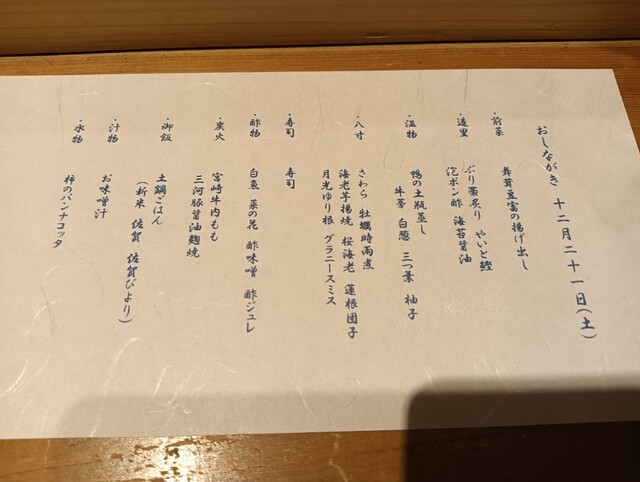 おしながき 十二月二十一日(土)
・前菜 舞茸豆富の揚げ出し
・造里 ぶり藁炙り やいと鰹
泡ポン酢 海苔醤油
・温物 鴨の土瓶蒸し
牛蒡 白葱 三つ葉 柚子
・八寸 さわら 牡蠣時雨煮
海老芋揚焼 桜海老 蓮根団子
月光ゆり根 グラニースミス
・寿司 寿司
・酢物 白魚 菜の花 酢味噌 酢ジュレ
・炭火 宮崎牛内もも
三河豚醤油麹焼
・御飯 土鍋ごはん
(新米 佐賀 佐賀びより)
・汁物 お味噌汁
・水物 柿のパンナコッタ